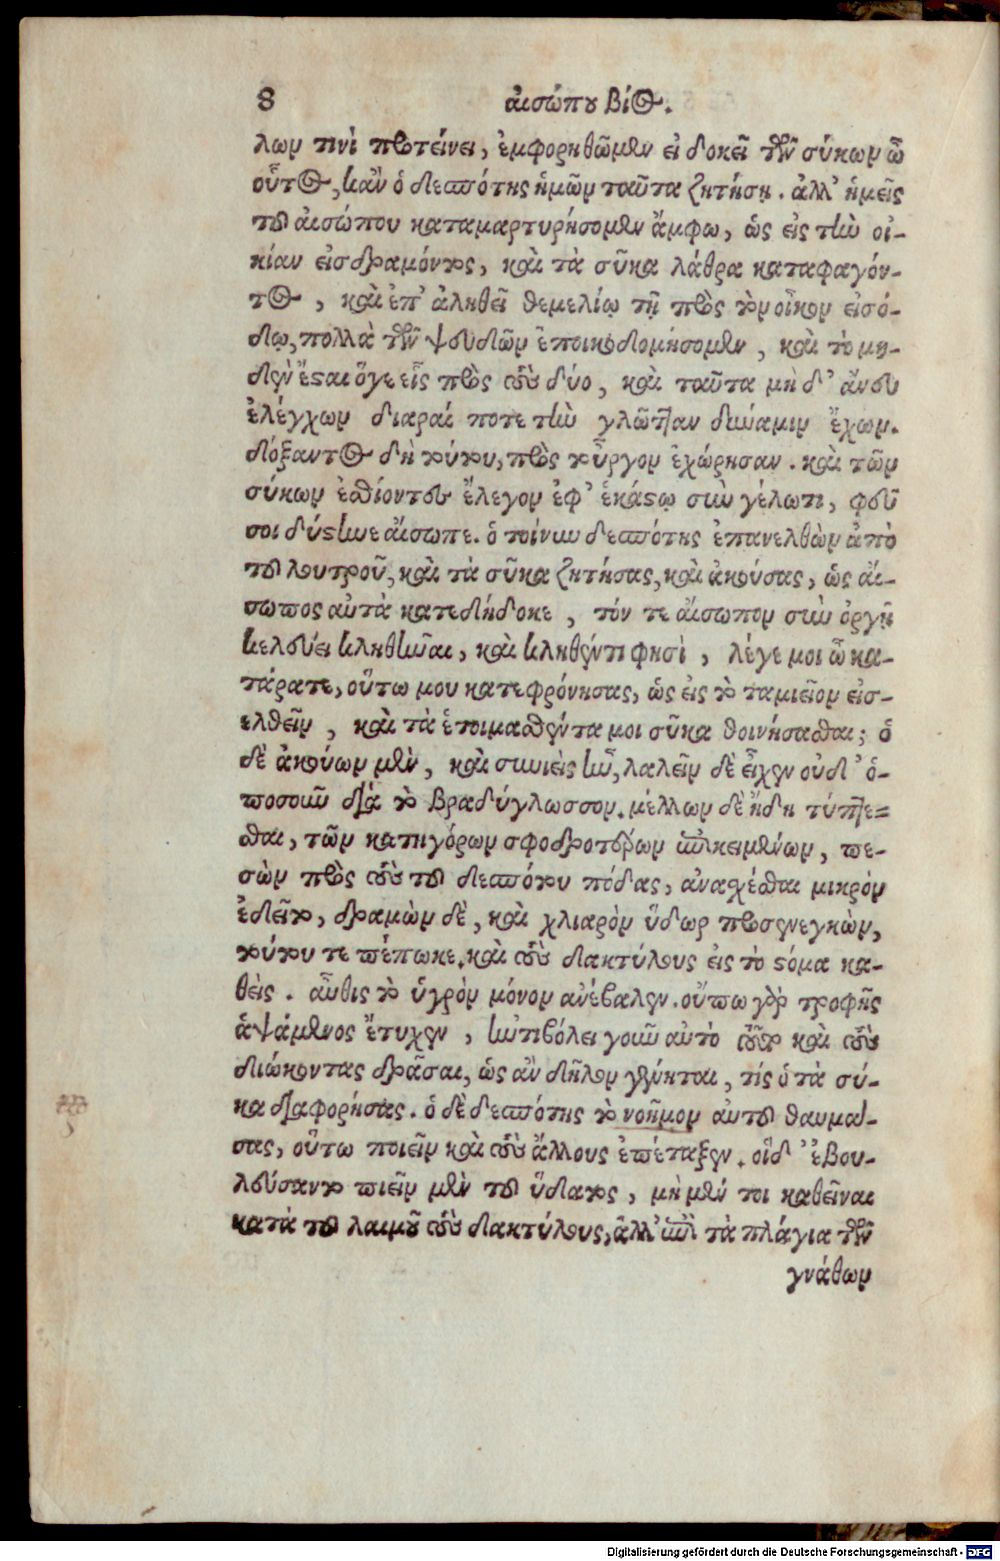 8 αἰσώπου βίος.
λων τινὶ προτείνει, ἐμφορηθῶμεν εἰ δοκεῖ τῶν σύκων ὦ
οὗτος, κἂν ὁ δεσπότης ἡμῶν ταῦτα ζητήσῃ. ἀλλ' ἡμεῖς
τοῦ αἰσώπου καταμαρτυρήσομεν ἄμφω, ὡς εἰς τὴν οἰ-
κίαν εἰσδραμόντος, καὶ τὰ σῦκα λάθρα καταφαγόν-
τος, καὶ ἐπ' ἀληθεῖ θεμελίῳ τῇ πρὸς τὸν οἶκον εἰσό-
δῳ, πολλὰ τῶν ψευδῶν ἐποικοδομήσομεν, καὶ τὸ μη-
δὲν ἔσται ὅγε εἷς πρὸς τοὺς δύο, καὶ ταῦτα μὴ δ' ἄνευ
ἐλέγχων διαραί ποτε τὴν γλῶτταν δύναμιν ἔχων.
δόξαντος δὴ τούτου, πρὸς τοὖργον ἐχώρησαν. καὶ τῶν
σύκων ἐσθίοντες ἔλεγον ἐφ' ἑκάστῳ σὺν γέλωτι, φεῦ
σοι δύστηνε αἴσωπε. ὁ τοίνυν δεσπότης ἐπανελθὼν ἀπὸ
τοῦ λουτροῦ, καὶ τὰ σῦκα ζητήσας, καὶ ἀκούσας, ὡς αἴ-
σωπος αὐτὰ κατεδήδοκε, τόν τε αἴσωπον σὺν ὀργῇ
κελεύει κληθῆναι, καὶ κληθέντι φησὶ, λέγε μοι ὦ κα-
τάρατε, οὕτω μου κατεφρόνησας, ὡς εἰς τὸ ταμιεῖον εἰσ-
ελθεῖν, καὶ τὰ ἑτοιμασθέντα μοι σῦκα θοινήσασθαι; ὁ
δὲ ἀκούων μὲν, καὶ συνιεὶς ἦν, λαλεῖν δὲ εἶχεν οὐδ' ὁ-
ποσοῦν διὰ τὸ βραδύγλωσσον. μέλλων δὲ ἤδη τύπτε=
σθαι, τῶν κατηγόρων σφοδροτέρων ἐπικειμένων, πε-
σὼν πρὸς τοὺς τοῦ δεσπότου πόδας, ἀνασχέσθαι μικρὸν
ἐδεῖτο, δραμὼν δὲ, καὶ χλιαρὸν ὕδωρ προσενεγκὼν,
τούτου τε πέπωκε. καὶ τοὺς δακτύλους εἰς τὸ στόμα κα-
θεὶς. αὖθις τὸ ὑγρὸν μόνον ἀνέβαλεν. οὔπω γὰρ τροφῆς
ἁψάμενος ἔτυχεν, ἠντιβόλει γοῦν αὐτὸ τοῦτο καὶ τοὺς
διώκοντας δρᾶσαι, ὡς ἂν δῆλον γένηται, τίς ὁ τὰ σύ-
κα διαφορήσας. ὁ δὲ δεσπότης τὸ νοῆμον αὐτοῦ θαυμά-
σας, οὕτω ποιεῖν καὶ τοὺς ἄλλους ἐπέταξεν. οἱδ' ἐβου-
λεύσαντο πιεῖν μὲν τοῦ ὕδατος, μὴ μέν τοι καθεῖναι
κατὰ τοῦ λαιμοῦ τοὺς δακτύλους, ἀλλ' ἐπὶ τὰ πλάγια τῶν
γνάθων
Digitalisierung gefördert durch die Deutsche Forschungsgemeinschaft - DFG